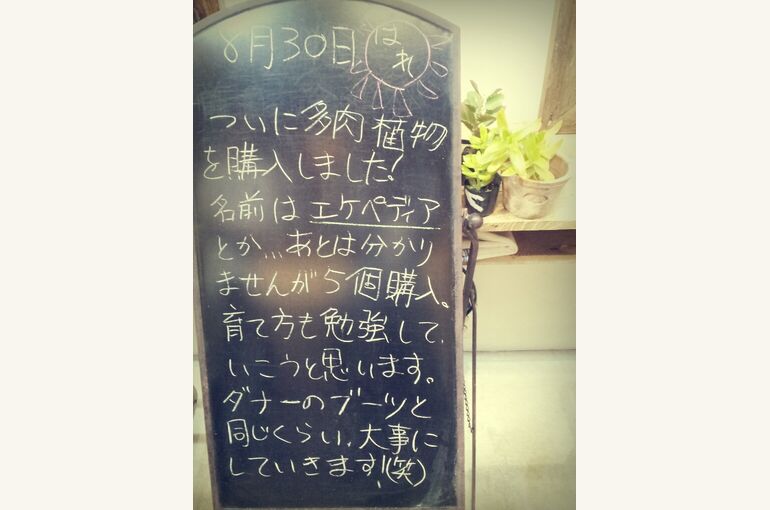 8月30日 はれ
ついに多肉植物
を購入しました!
名前はエケペディア
とか...あとは分かり
ませんが5個購入。
育て方も勉強して、
いこうと思います。
ダナーのブーツと
同じくらい、大事に
していきます!(笑)